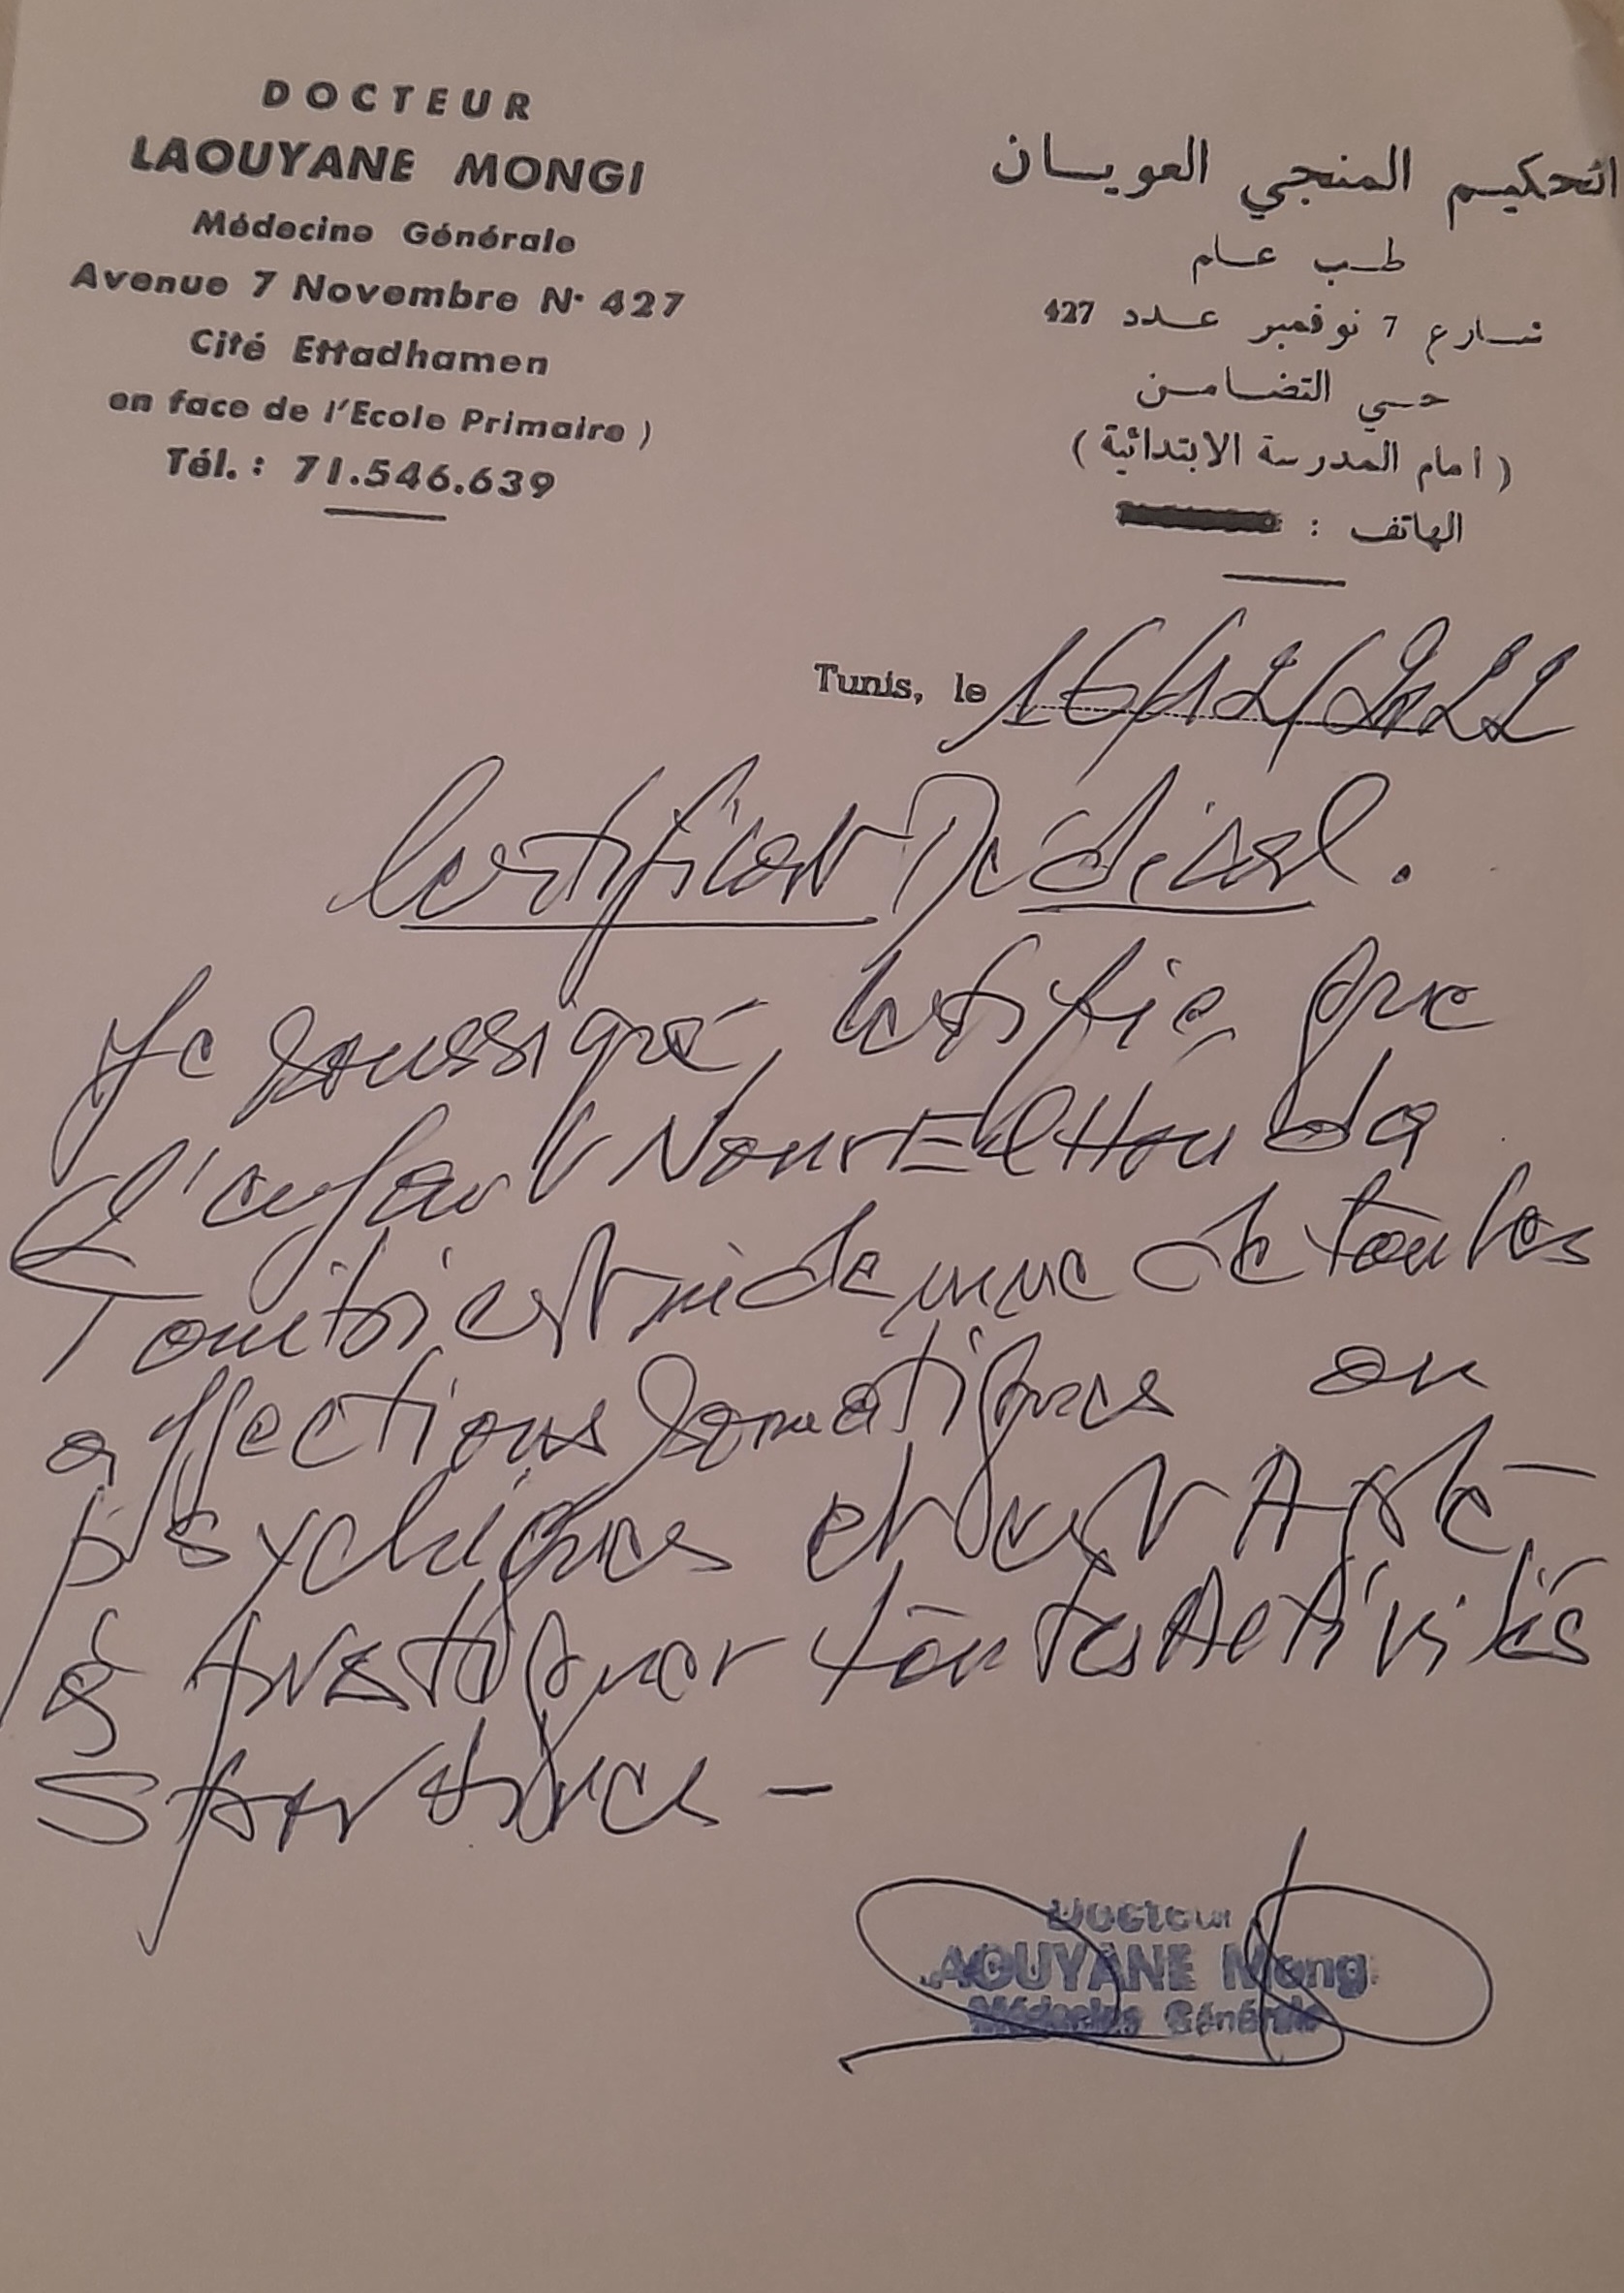 DOCTEUR
LAOUYANE MONGI
Médecine Générale
Avenue 7 Novembre N° 427
Cité Ettadhamen
en face de l'Ecole Primaire )
Tél. : 71.546.639
الحكيم المنجي العويسان
طب عام
شارع 7 نوفمبر عدد 427
حي التضامن
( امام المدرسة الابتدائية )
الهاتف :
Tunis, le 16/12/2022
Certificat Médical.
Je soussigné, certifie que
l'enfant Nour El Houda
est indemne de toutes
affections somatiques ou
psychiques et est Apte
à pratiquer toutes Activités
Sportives -
Docteur
AOUYANE Mong
Médecine Générale